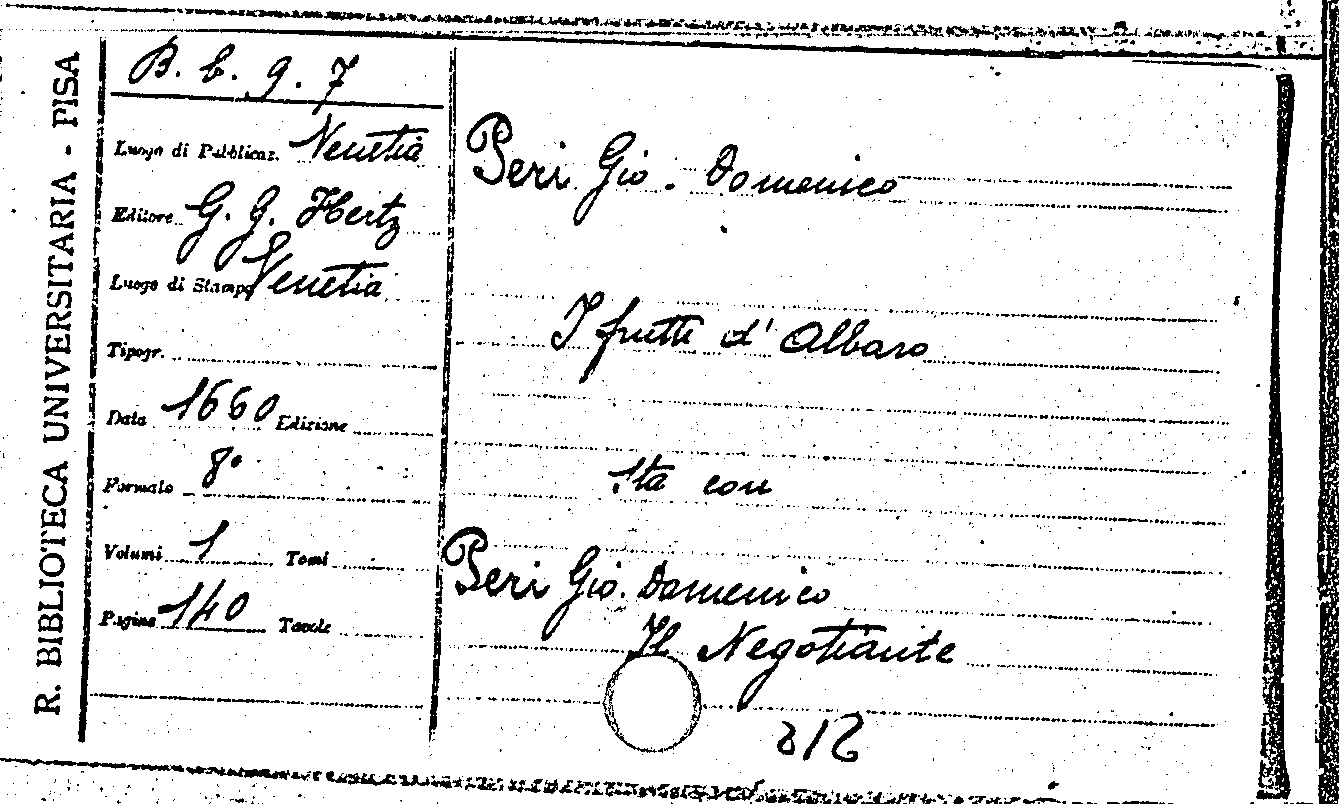 R. BIBLIOTECA UNIVERSITARIA - PISA
B. b. 9. 7
Luogo di Pubblicaz. Venetia
Editore G. G. Hertz
Luogo di Stampa Venetia
Tipogr.
Data 1660 Edizione
Formato 8°
Volumi 1 Tomi
Pagine 140 Tavole
Peri Gio. Domenico
I frutti d'Albaro
Sta con
Peri Gio. Domenico
Il Negotiante